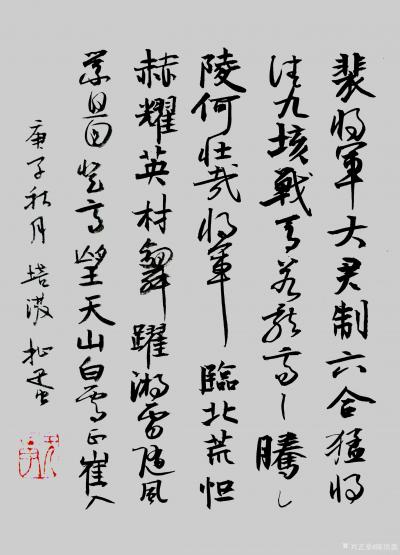 裴将军大君制六合猛将
清九垓战马若龙虎腾
陵何壮哉将军临北荒怛
赫耀英材舞跃游雷随风
萦且回登高望天山白雪正崔入
庚子秋月